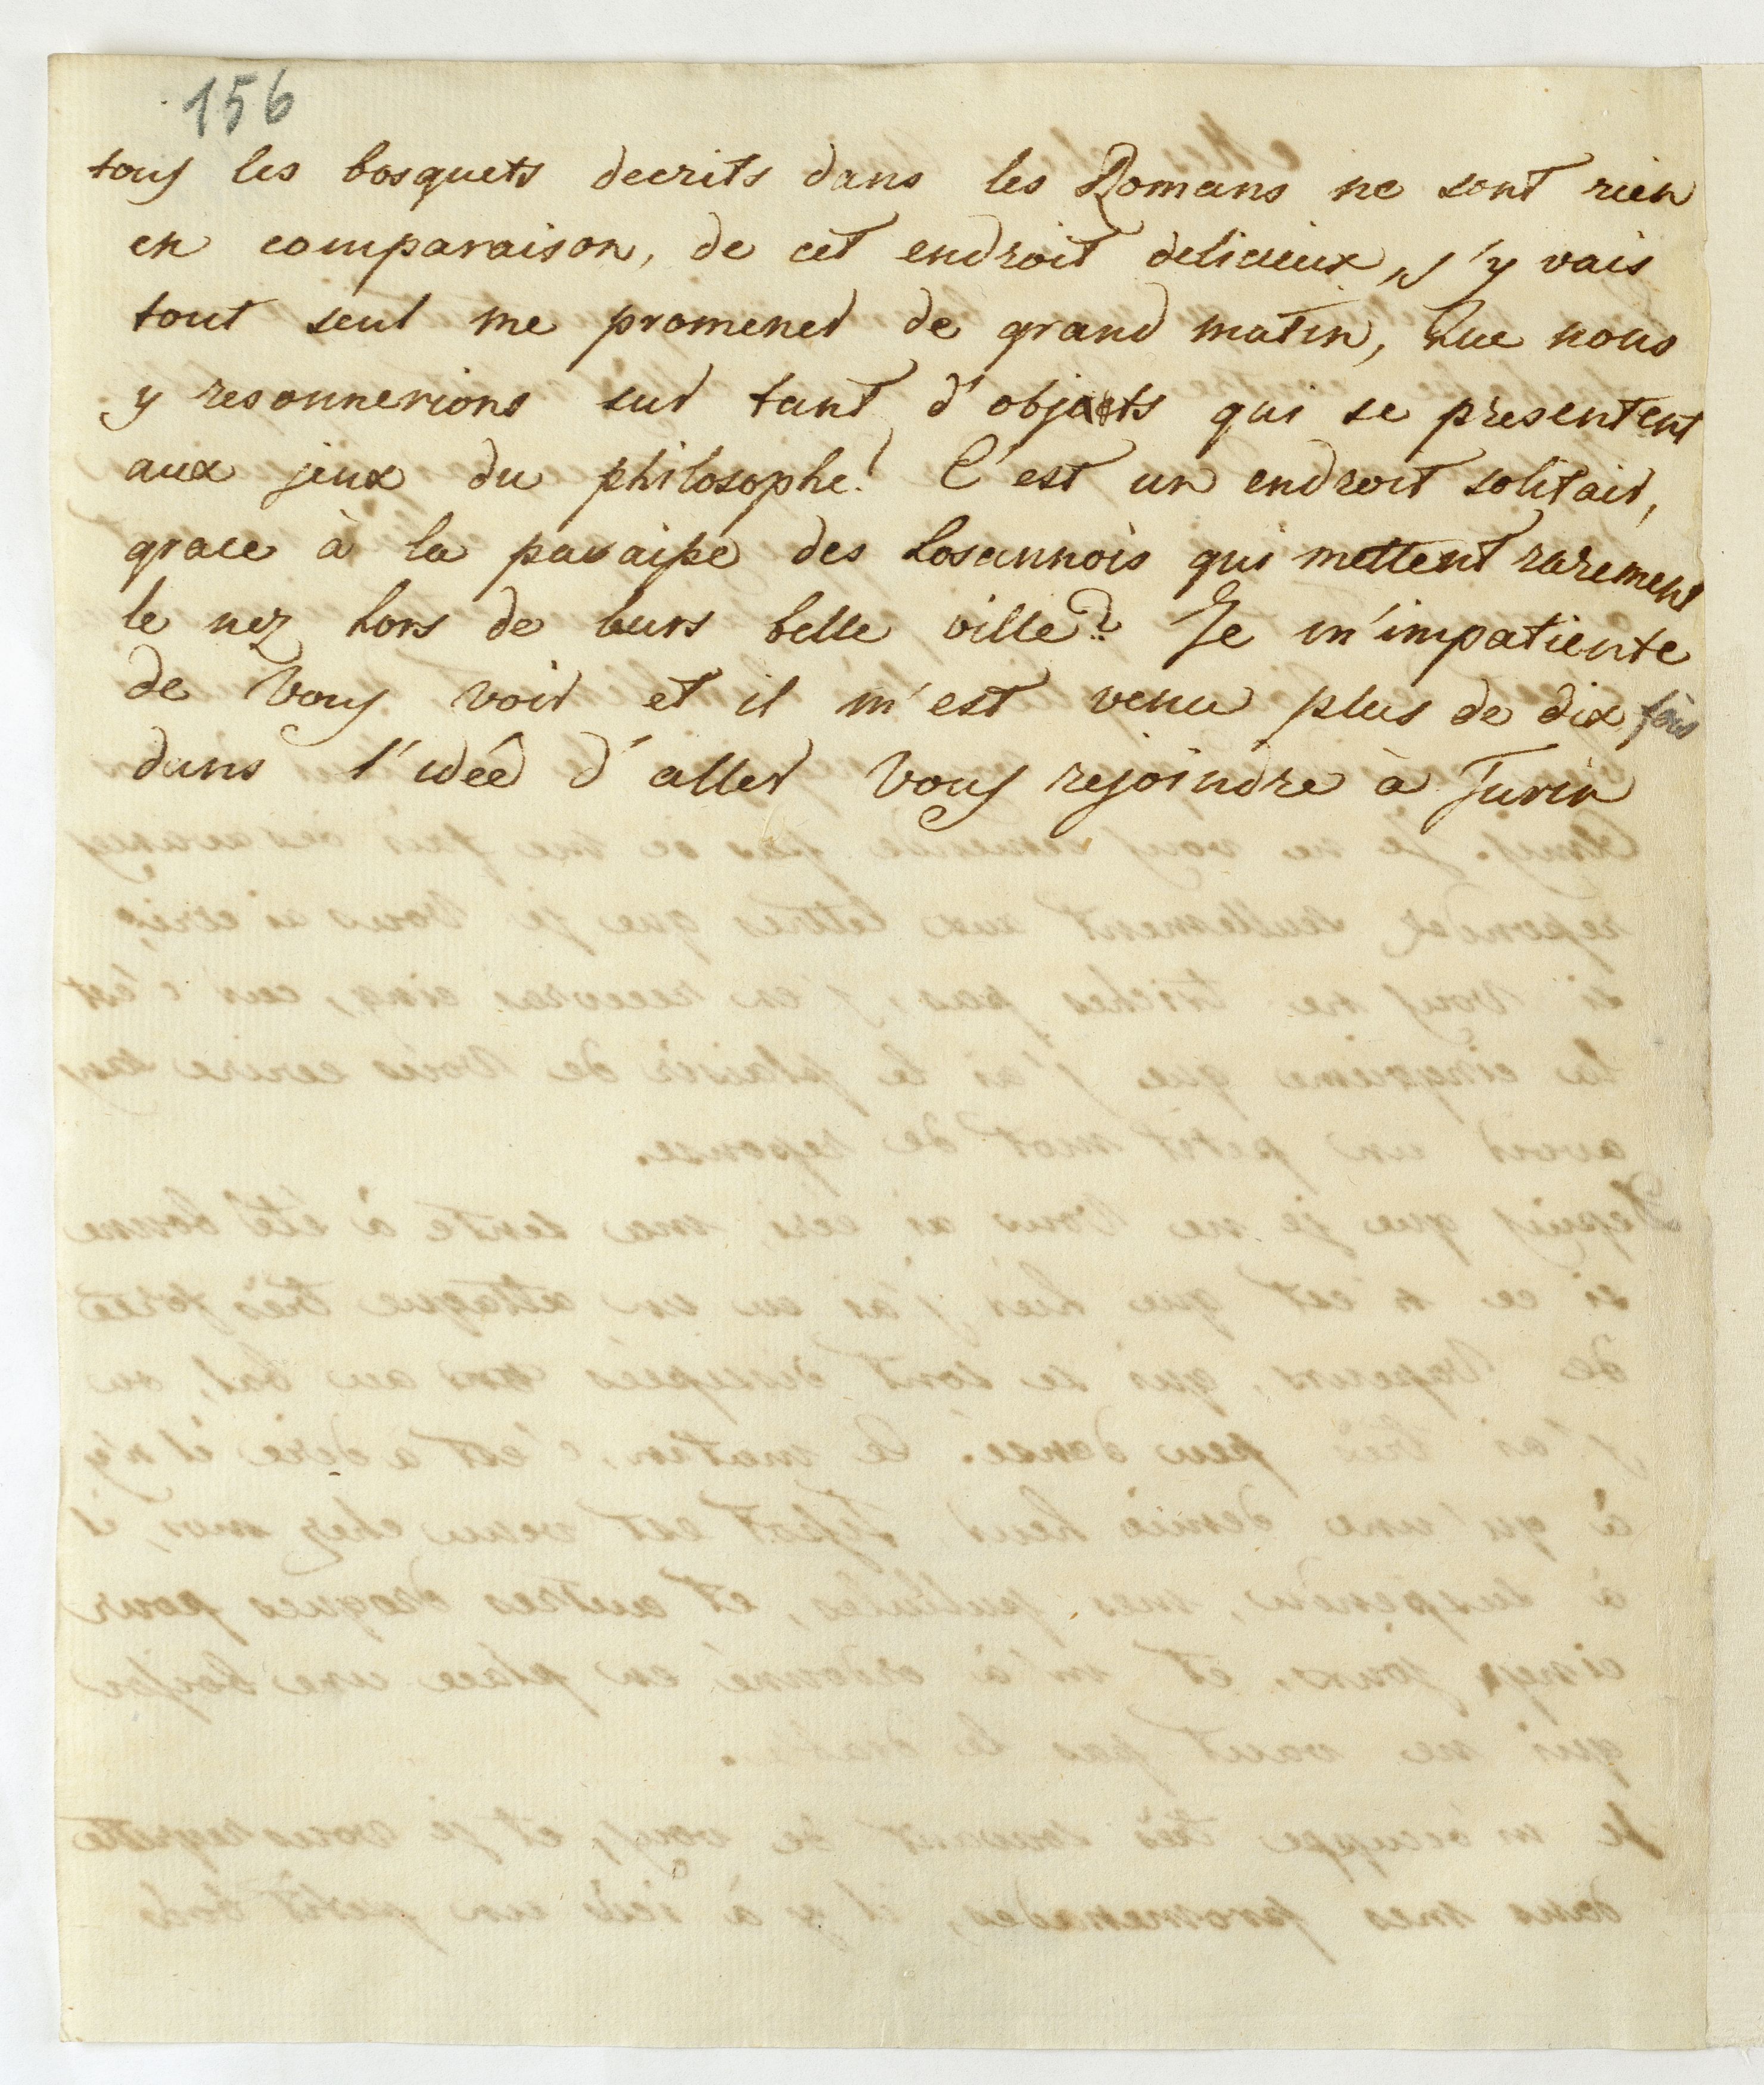 156
tous les bosquets decrits dans les Romans ne sont rien
en comparaison, de cet endroit delicieux, j'y vais
tout seul me promener de grand matin, Que nous
y resonnerions sur tant d'objets qui se presentent
aux jeux du philosophe! C'est un endroit solitair,
grace à la des Losannois qui mettent rarement
le nez hors de leurs belle ville. Je m'impatiente
de Vous voir et il m'est venu plus de dix fois
dans l'idée d'aller Vous rejoindre à Turin